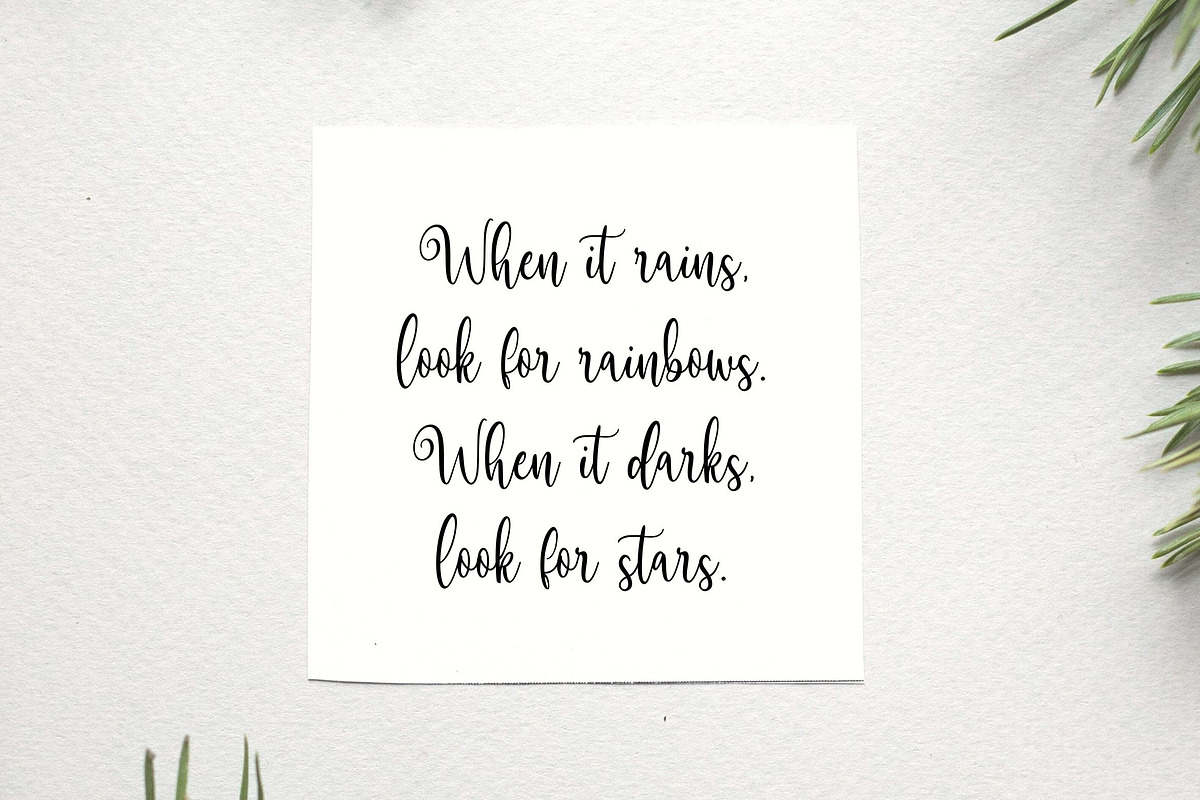 When it rains,
look for rainbows.
When it darks,
look for stars.